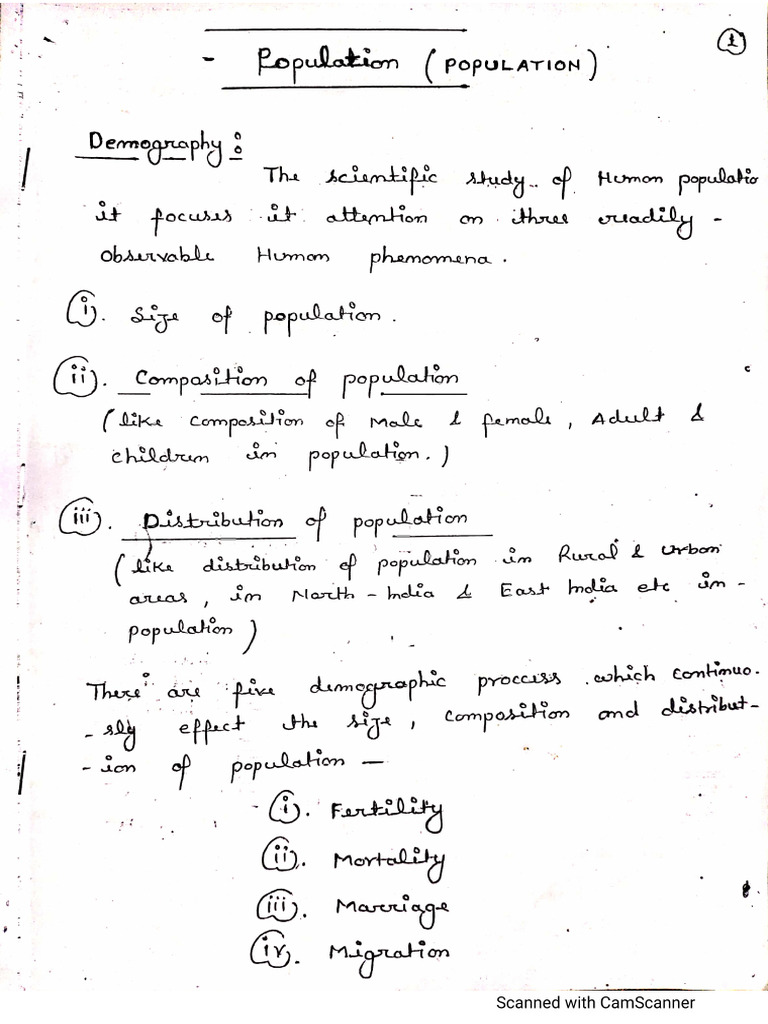 ①
- Population (POPULATION)
Demography :
The scientific study of Human populatio
it focuses it attention on three readily -
observable Human phenomena.
(i). Size of population.
(ii). Composition of population
(like composition of Male & female, Adult &
children in population.)
(iii). Distribution of population
(like distribution of population in Rural & Urban
areas, in North-India & East India etc in -
population)
There are five demographic proccess which continuo.
- sly effect the size, composition and distribut-
- ion of population —
(i). Fertility
(ii). Mortality
(iii). Marriage
(iv). Migration
Scanned with CamScanner